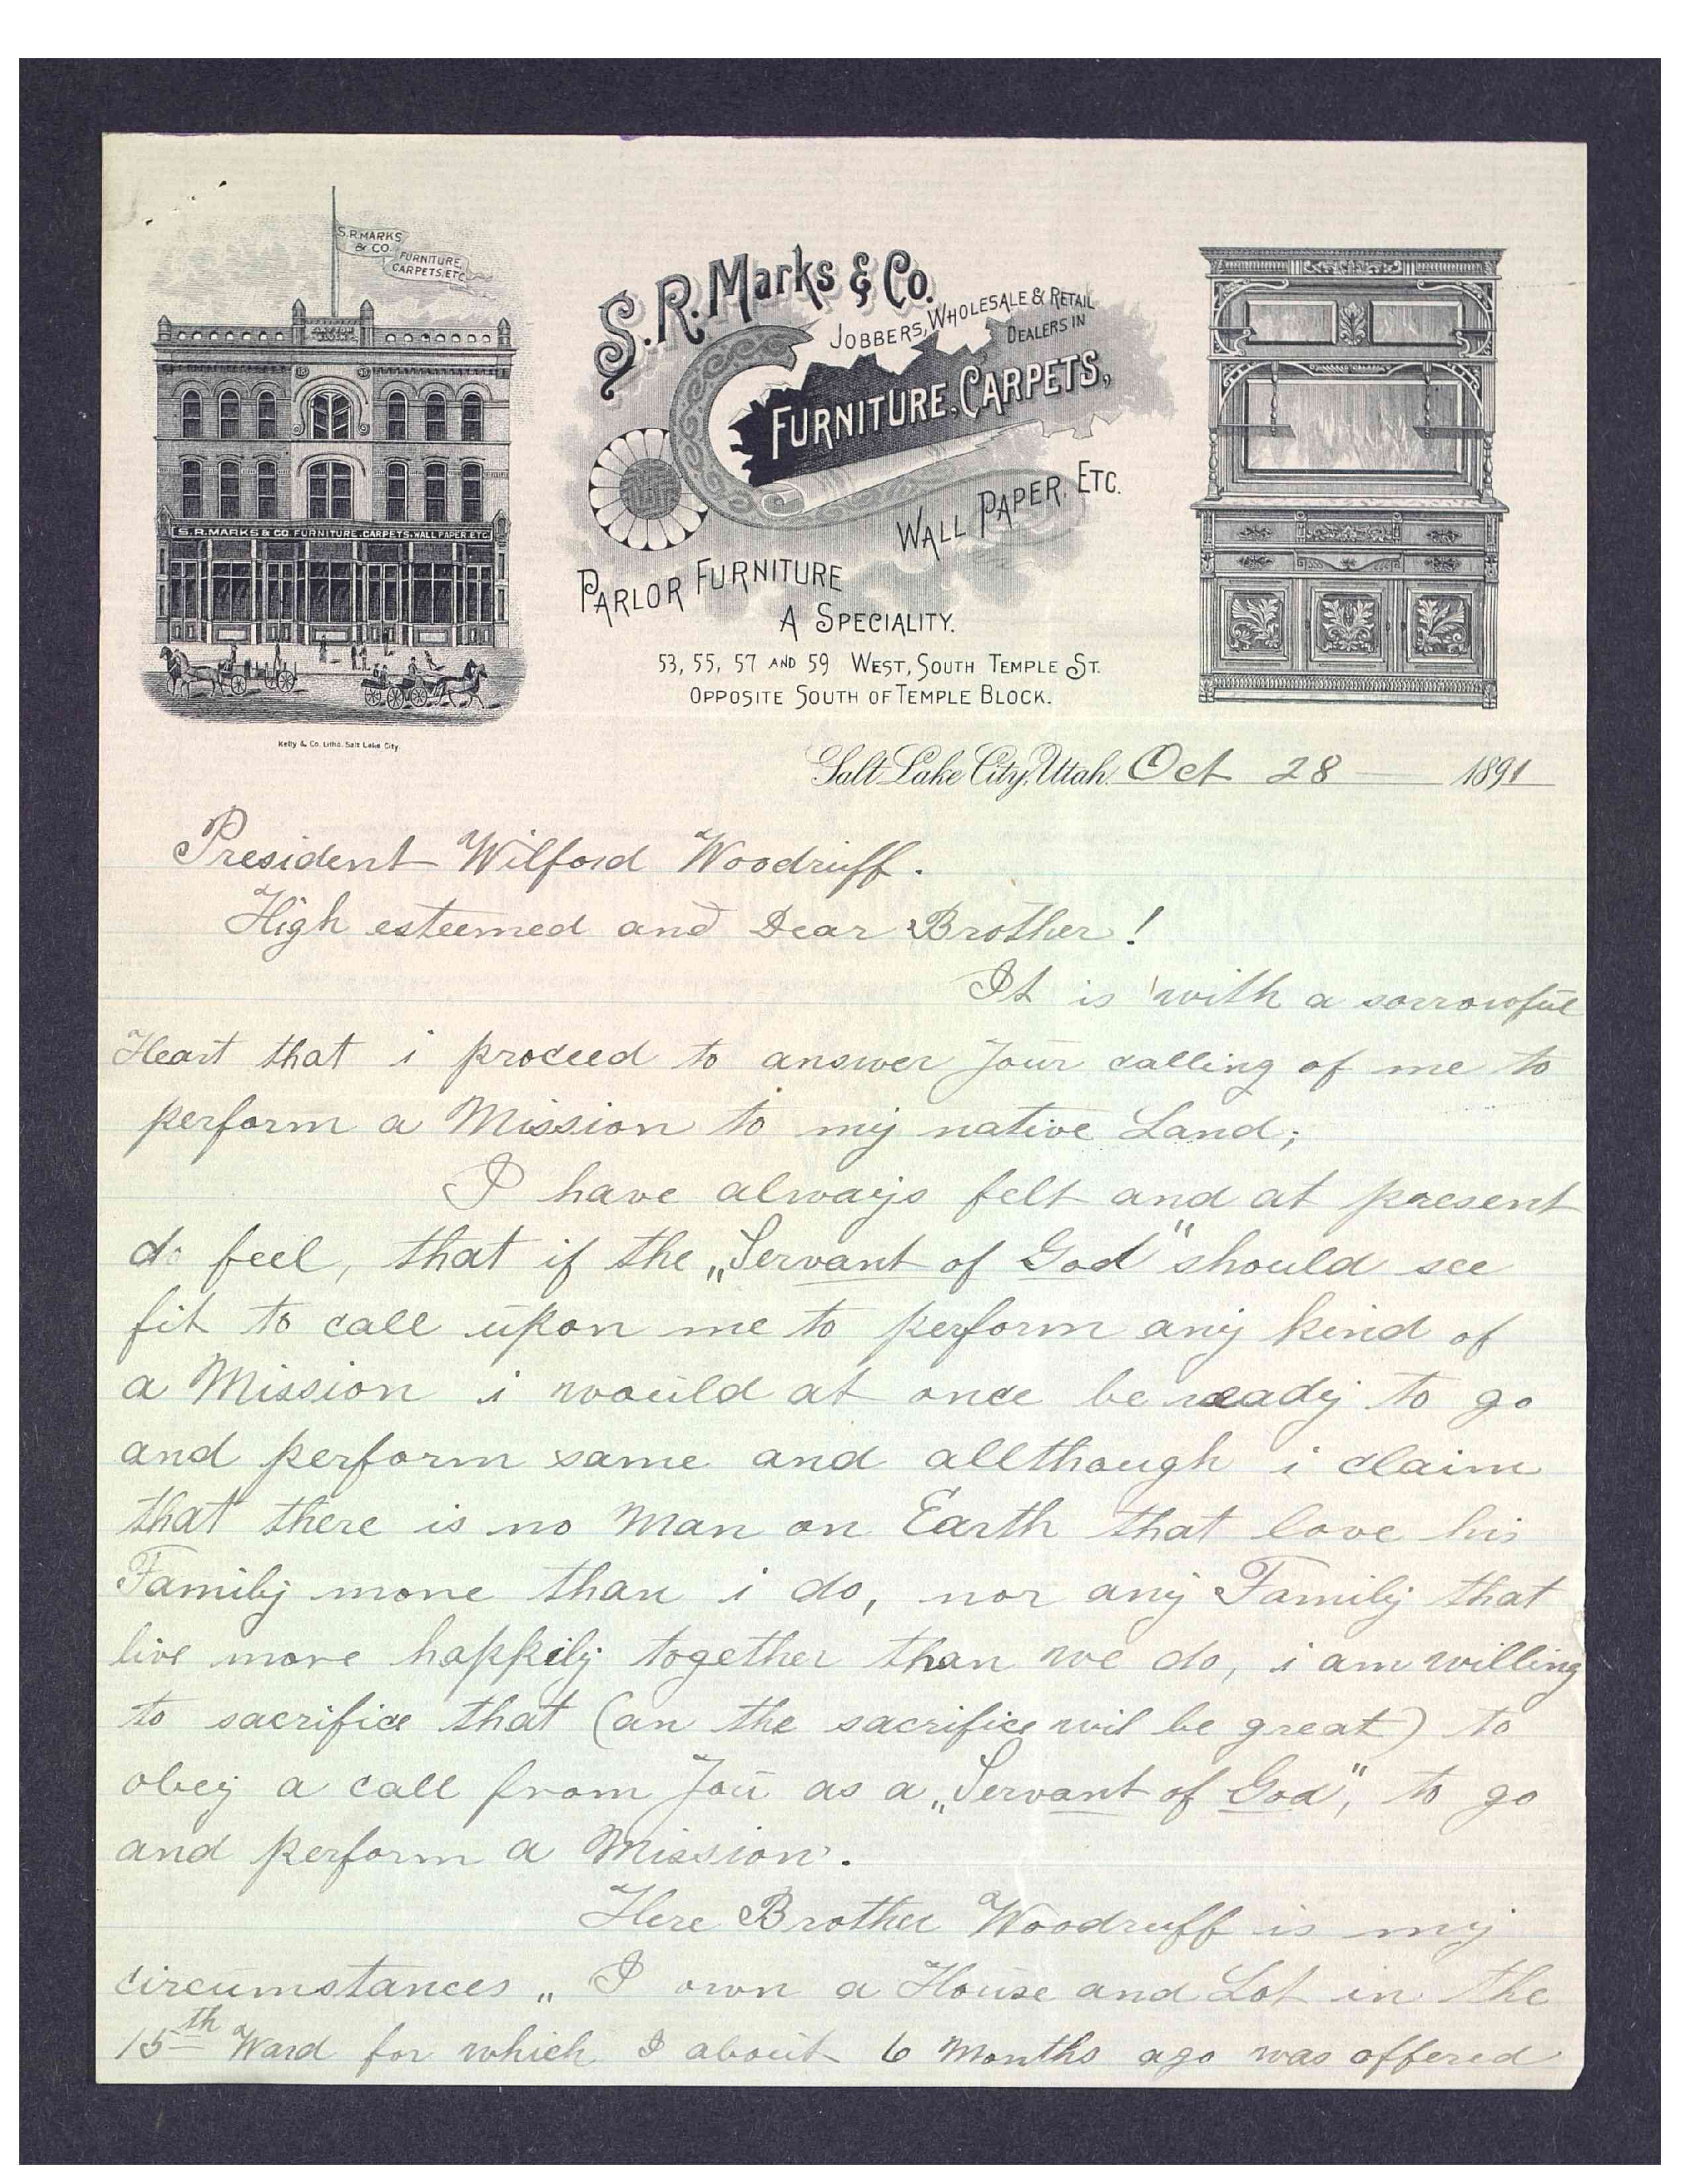 S.R.MARKS
& CO.
FURNITURE,
CARPETS, ETC.
S.R.MARKS & CO. FURNITURE, CARPETS, WALL PAPER, ETC.
Kelly & Co. Litho. Salt Lake City.
S.R. Marks & Co.
JOBBERS, WHOLESALE & RETAIL
DEALERS IN
FURNITURE, CARPETS,
WALL PAPER, ETC.
PARLOR FURNITURE
A SPECIALITY.
53, 55, 57 AND 59 WEST, SOUTH TEMPLE ST.
OPPOSITE SOUTH OF TEMPLE BLOCK.
Salt Lake City, Utah. Oct 28 — 1891
President Wilford Woodruff.
High esteemed and Dear Brother!
It is with a sorrowful
Heart that i proceed to answer Jour calling of me to
perform a Mission to my native Land;
I have always felt and at present
do feel, that if the „Servant of God" should see
fit to call upon me to perform any kind of
a Mission i would at once be ready to go
and perform same and allthough i claim
that there is no Man on Earth that love his
Family more than i do, nor any Family that
live more happily together than we do, i am willing
to sacrifice that (an the sacrifice wil be great) to
obey a call from Jou as a „Servant of God", to go
and perform a Mission.
Here Brother Woodruff is my
circumstances „ I own a House and Lot in the
15th Ward for which I about 6 Months ago was offered